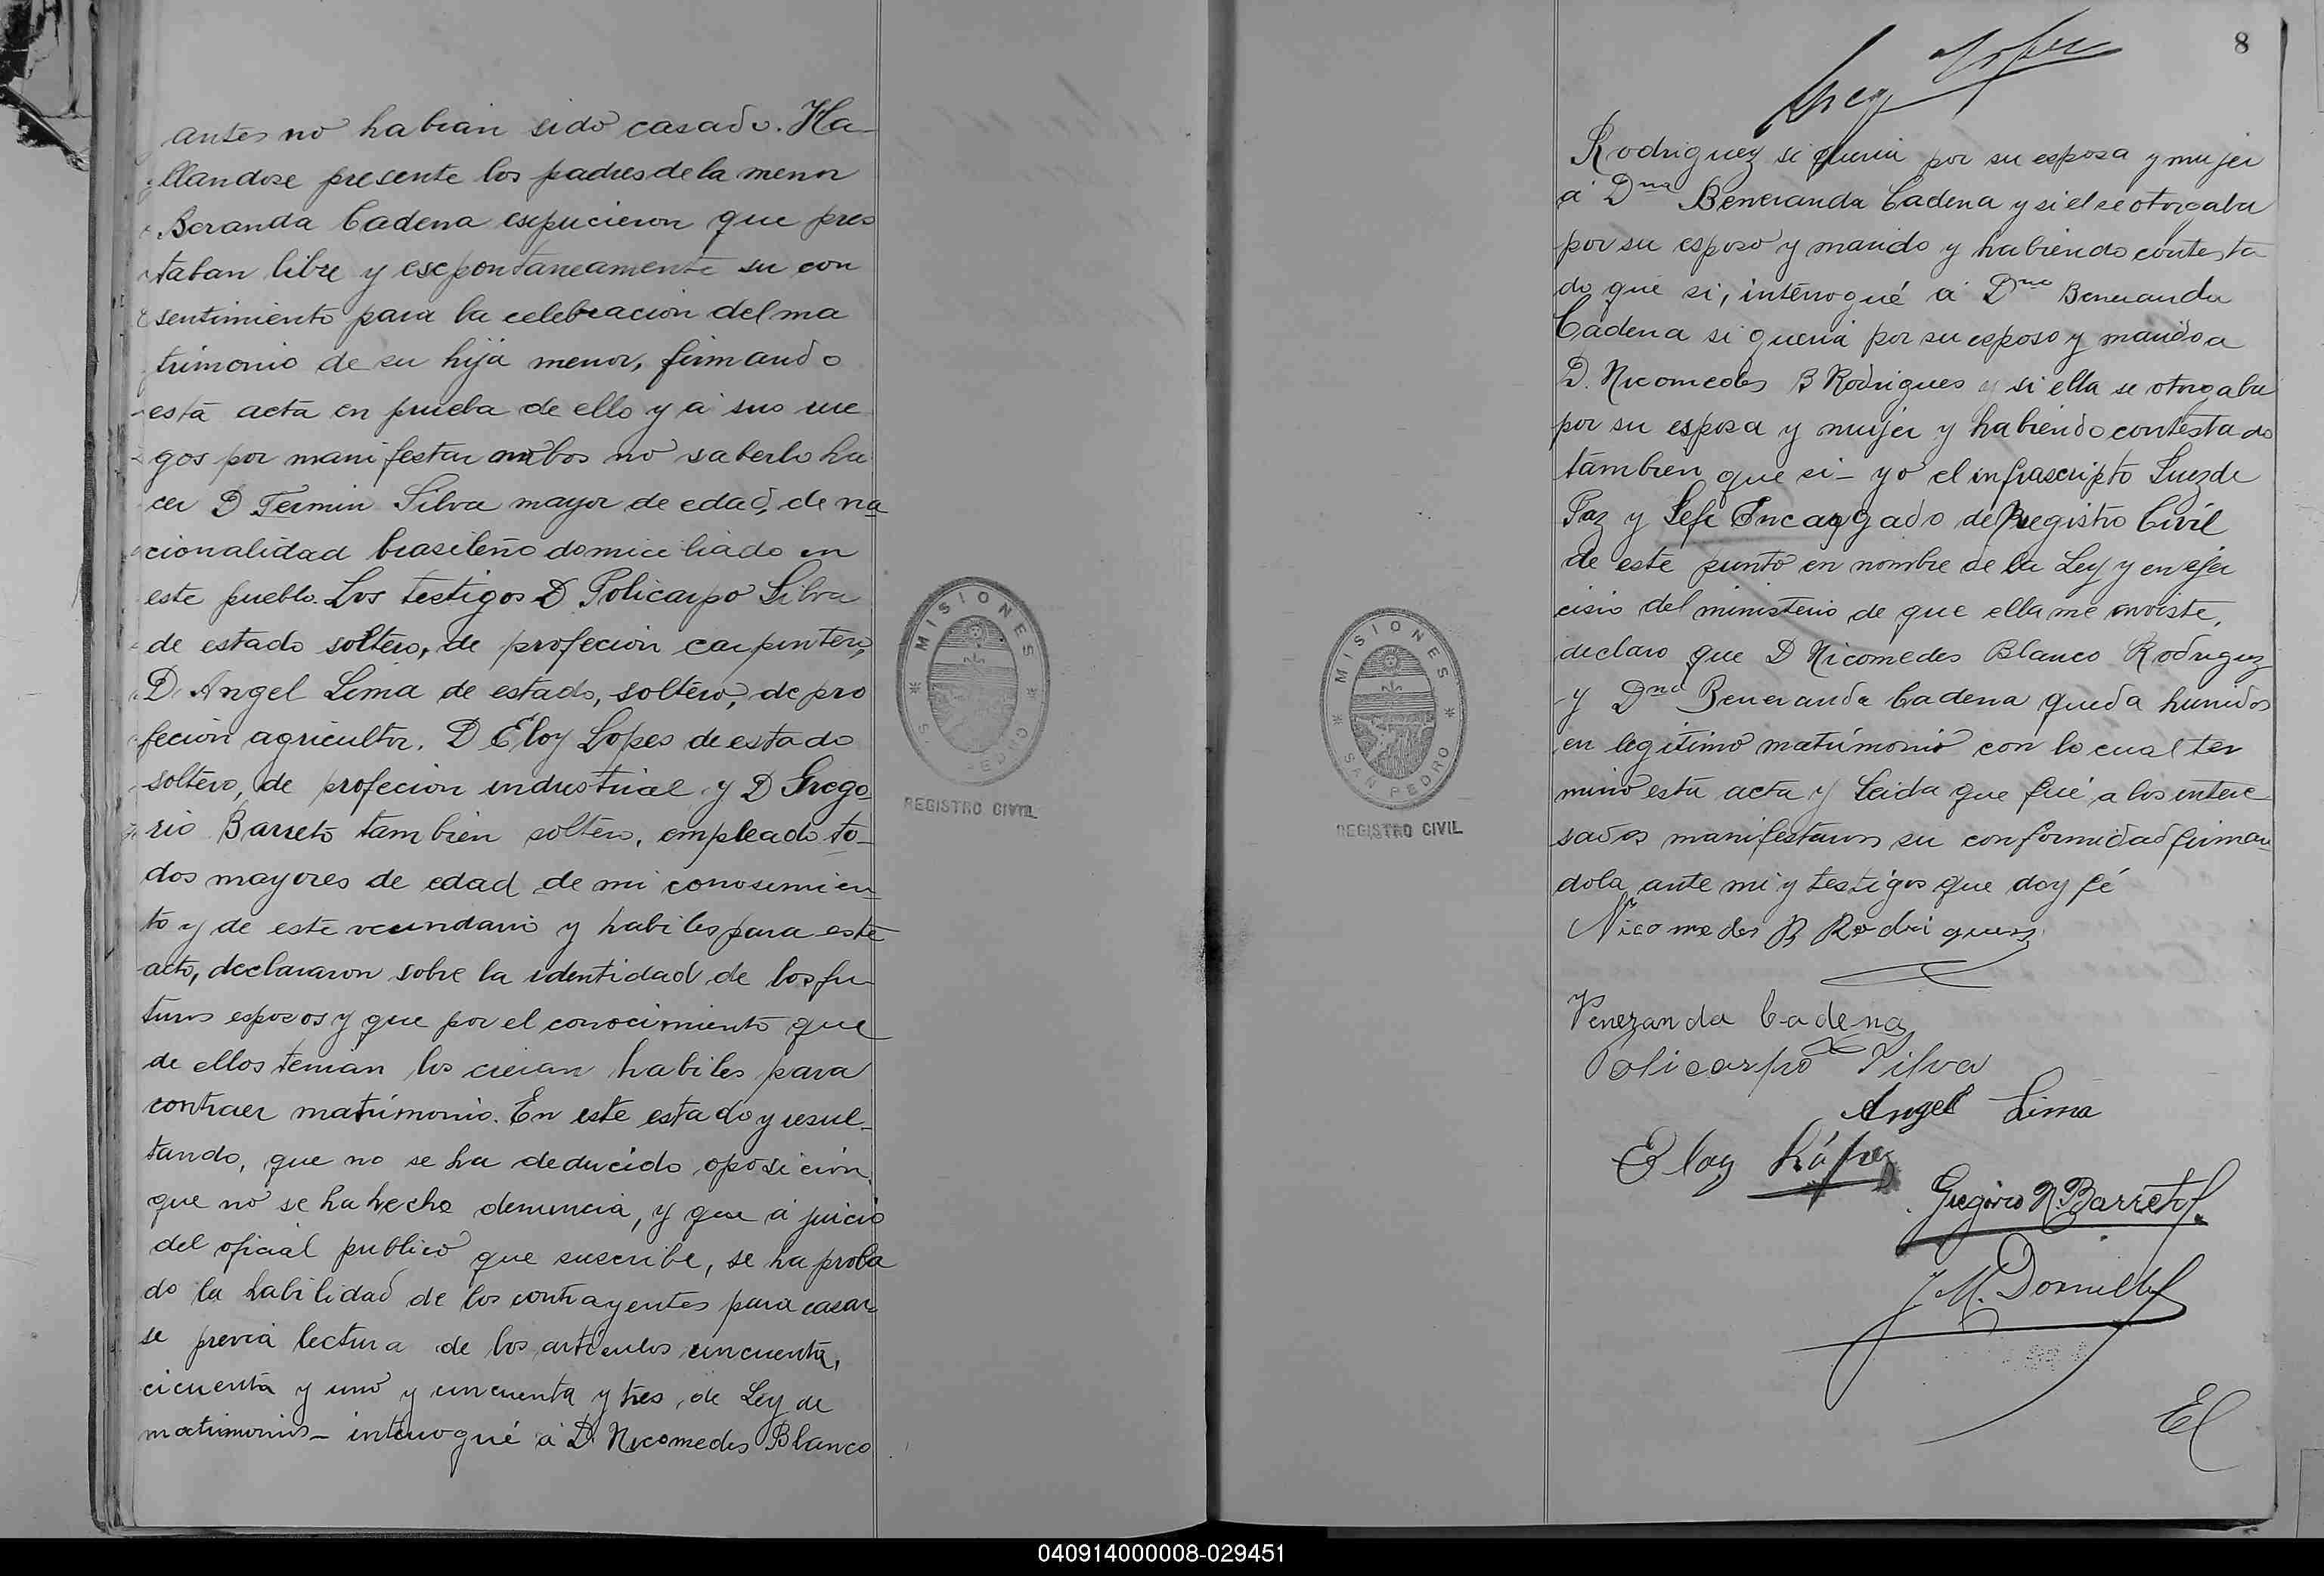 antes no habian sido casado. Ha-
llandose presente los padres de la menor
Beranda Cadena espucieron que pres
taban libre y escpontaneamente su con
sentimiento para la celebracion del ma
trimonio de su hija menor, firmando
está acta en prueba de ello y á sus rue
gos por manifestar ambos no saberlo ha
cer D Fermin Silva mayor de edad, de na
cionalidad brasileño domiciliado en
este pueblo. Los testigos D. Policarpo Silva
de estado soltero, de profecion carpintero,
D. Angel Lima de estado, soltero, de pro
fecion agricultor. D Eloy Lopes de estado
soltero, de profecion industrial y D Grego
rio Barreto tambien soltero, empleado to-
dos mayores de edad de mi conosimien
to y de este vecundario y habiles para este
acto, declararon sobre la identidad de los fu
turos esposos y que por el conocimiento que
de ellos tenian los creian habiles para
contraer matrimonio. En este estado y resul-
tando, que no se ha deducido oposicion,
que no se ha hecho denuncia, y que á juicio
del oficial publico que suscribe, se ha proba
do la habilidad de los contrayentes para casar-
se previa lectura de los articulos cincuenta,
cicuenta y uno y cincuenta y tres, de Ley de
matrimonios - interrogué á D. Nicomedes Blanco
MISIONES
SAN PEDRO
REGISTRO CIVIL
MISIONES
SAN PEDRO
REGISTRO CIVIL
8
Rodriguez si queria por su esposa y mujer
á Dna Beneranda Cadena y si el se otorgaba
por su esposo y marido y habiendo contesta
do que si, interrogué á Dna Beneranda
Cadena si queria por su esposo y marido a
D. Nicomedes B Rodrigues y si ella se otorgaba
por su esposa y mujer y habiendo contestado
tambien que si - yo el infrascripto Juez de
Paz y Jefe Encargado del Registro Civil
de este punto en nombre de la Ley y en ejer
cisio del ministerio de que ella me inviste,
declaro que D Nicomedes Blanco Rodriguez
y Dna Beneranda Cadena queda hunidos
en legitimo matrimonio con lo cual ter
minó esta acta y leida que fué a los intere
sados manifestaron su conformidad firman
dola ante mi y testigos que doy fé
Nicomedes B Rodriguez
Venezanda Cadena
Policarpo Silva
Angel Lima
Eloy López
Gregorio N. Barreto
J M.
El
040914000008-029451